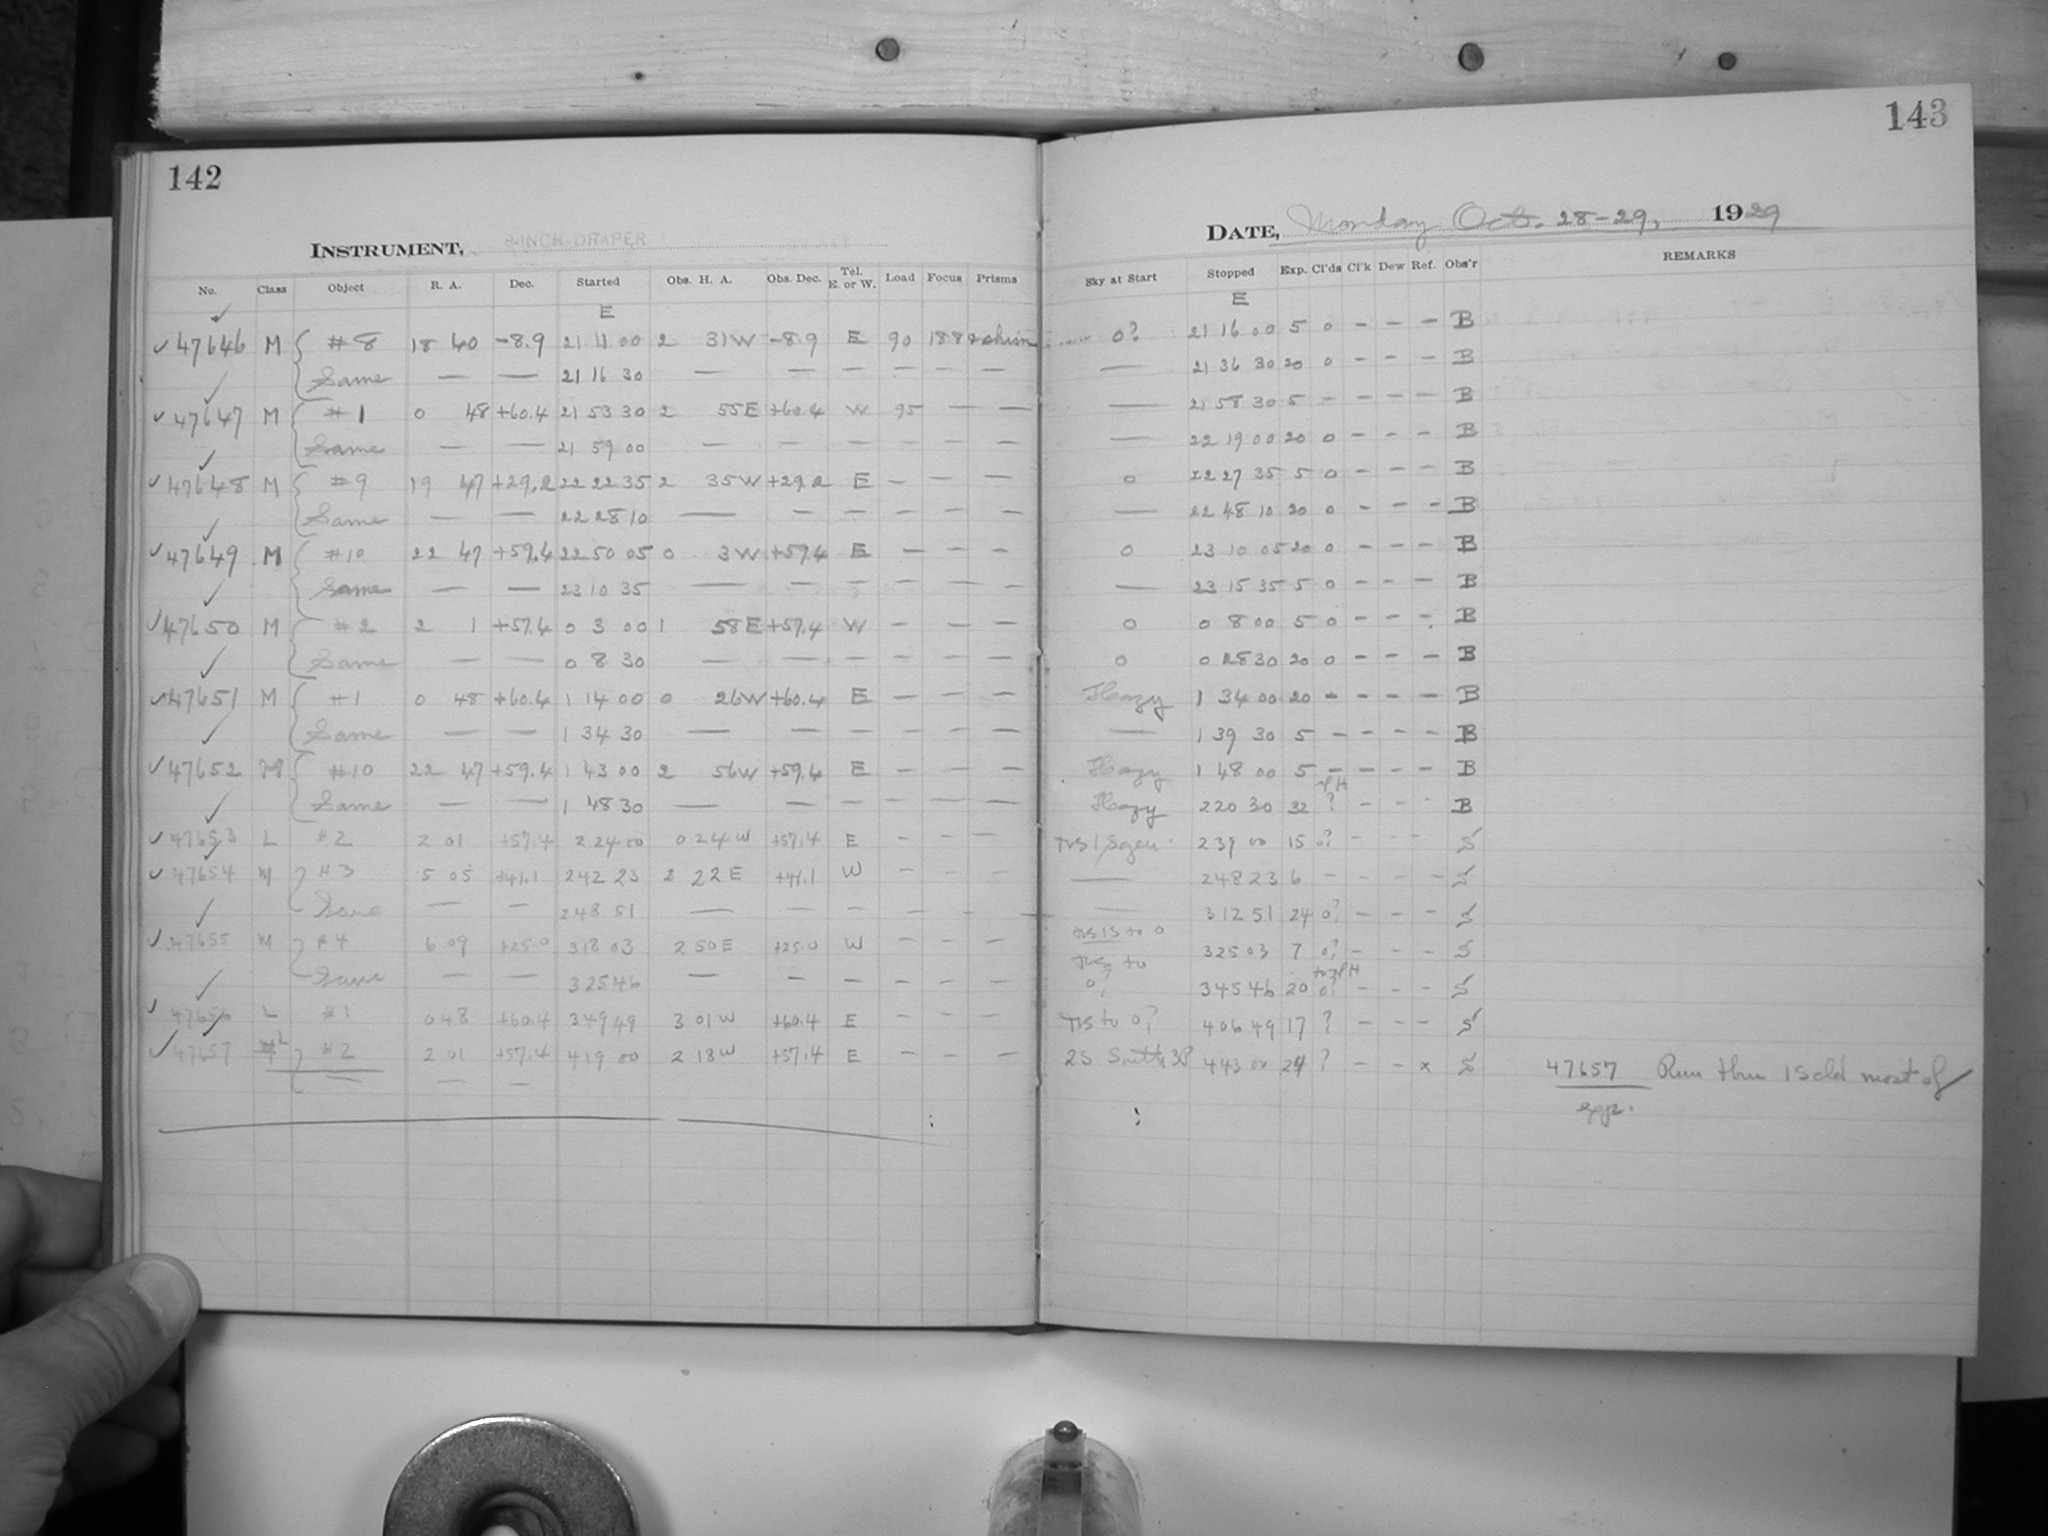 142
INSTRUMENT, 8-INCH-DRAPER
No. Class Object R. A. Dec. Started Obs. H. A. Obs. Dec. Tel. E. or W. Load Focus Prisms
E
47646 M #8 18 40 -8.9 21 11 00 2 31W -8.9 E 90 188
Same — — 21 16 30 — — — — — —
47647 M #1 0 48 +60.4 21 53 30 2 55E +60.4 W 95 — —
Same — — 21 59 00 — — — — — —
47648 M #9 19 47 +29.2 22 22 35 2 35W +29.2 E — — —
Same — — 22 28 10 — — — — — —
47649 M #10 22 47 +59.4 22 50 05 0 3W +57.4 E — — —
Same — — 23 10 35 — — — — — —
47650 M #2 2 1 +57.4 0 3 00 1 58E +57.4 W — — —
Same — — 0 8 30 — — — — — —
47651 M #1 0 48 +60.4 1 14 00 0 26W +60.4 E — — —
Same — — 1 34 30 — — — — — —
47652 M #10 22 47 +59.4 1 43 00 2 56W +59.4 E — — —
Same — — 1 48 30 — — — — — —
47653 L #2 2 01 +57.4 2 24 00 0 24W +57.4 E — — —
47654 M #3 5 05 +41.1 2 42 23 2 22E +41.1 W — — —
Same — — 2 48 51 — — — — — —
47655 M #4 6 09 +25.0 3 18 03 2 50E +25.0 W — — —
Same — — 3 25 46 — — — — — —
47656 L #1 0 48 +60.4 3 49 49 3 01W +60.4 E — — —
47657 #2 2 01 +57.4 4 19 00 2 18W +57.4 E — — —
143
DATE, Monday Oct. 28-29, 1929
Sky at Start Stopped Exp. Cl'ds Cl'k Dew Ref. Obs'r REMARKS
E
0? 21 16 00 5 0 — — — B
— 21 36 30 20 0 — — — B
— 21 58 30 5 — — — — B
— 22 19 00 20 0 — — — B
0 22 27 35 5 0 — — — B
— 22 48 10 20 0 — — — B
0 23 10 05 20 0 — — — B
— 23 15 35 5 0 — — — B
0 0 8 00 5 0 — — B
0 0 28 30 20 0 — — — B
Hazy 1 34 00 20 — — — — B
— 1 39 30 5 — — — — B
Hazy 1 48 00 5 — — — — B
Hazy 2 20 30 32 ? — — B
2 39 00 15 0? — — — S
— 2 48 23 6 — — — — S
— 3 12 51 24 0? — — — S
to 0 3 25 03 7 0? — — — S
to 0? 3 45 46 20 0? — — — S
to 0? 4 06 49 17 ? — — — S
2S 4 43 00 24 ? — — x S 47657 Run thru 1S cld most of
exp.